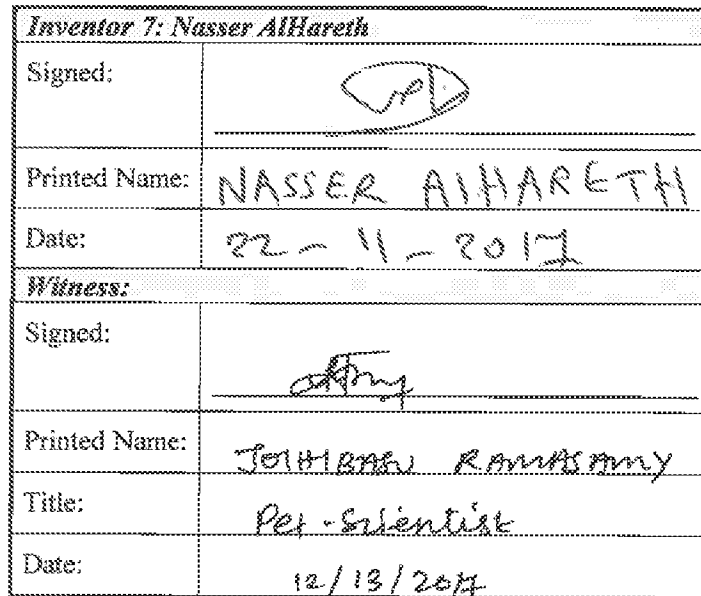 Inventor 7: Nasser AlHareth
Signed:
Printed Name: NASSER AlHARETH
Date: 22-11-2017
Witness:
Signed:
Printed Name: JOTHIBASU RAMASAMY
Title: Pet-Scientist
Date: 12/13/2017